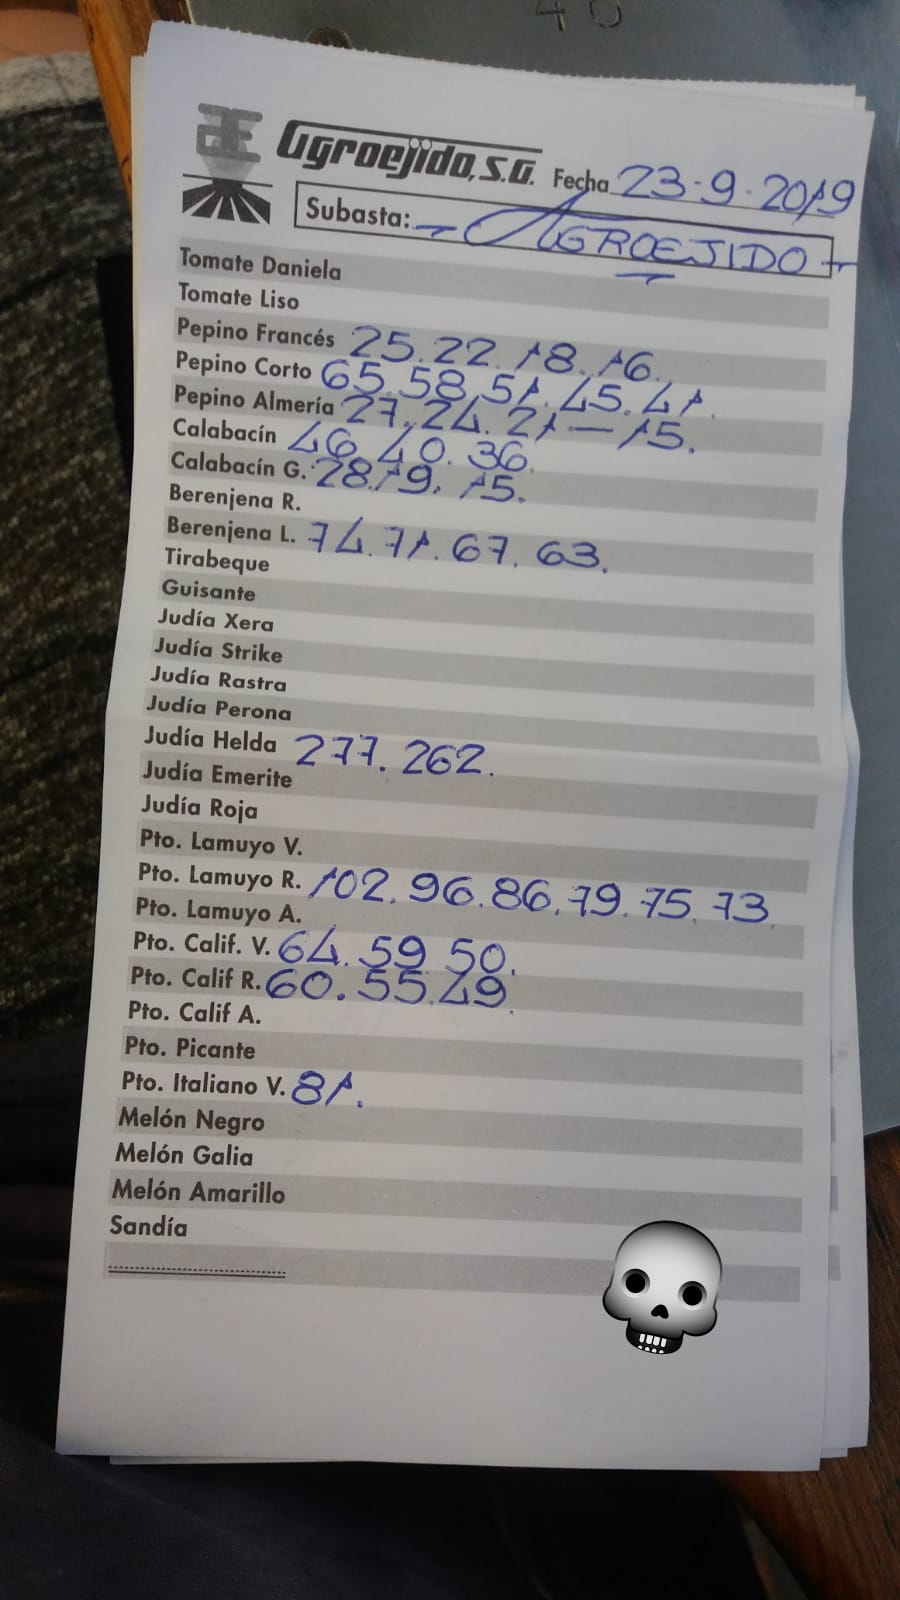 40
Agroejido, S.A. Fecha 23-9-2019
Subasta: - AGROEJIDO -
Tomate Daniela
Tomate Liso
Pepino Francés 25.22.18.16.
Pepino Corto 65.58.51.45.41.
Pepino Almería 27.24.21-15.
Calabacín 46.40.36.
Calabacín G. 28.19.15.
Berenjena R.
Berenjena L. 74.71.67.63.
Tirabeque
Guisante
Judía Xera
Judía Strike
Judía Rastra
Judía Perona
Judía Helda 277.262.
Judía Emerite
Judía Roja
Pto. Lamuyo V.
Pto. Lamuyo R. 102.96.86.79.75.73.
Pto. Lamuyo A.
Pto. Calif. V. 64.59.50.
Pto. Calif R. 60.55.49.
Pto. Calif A.
Pto. Picante
Pto. Italiano V. 81.
Melón Negro
Melón Galia
Melón Amarillo
Sandía